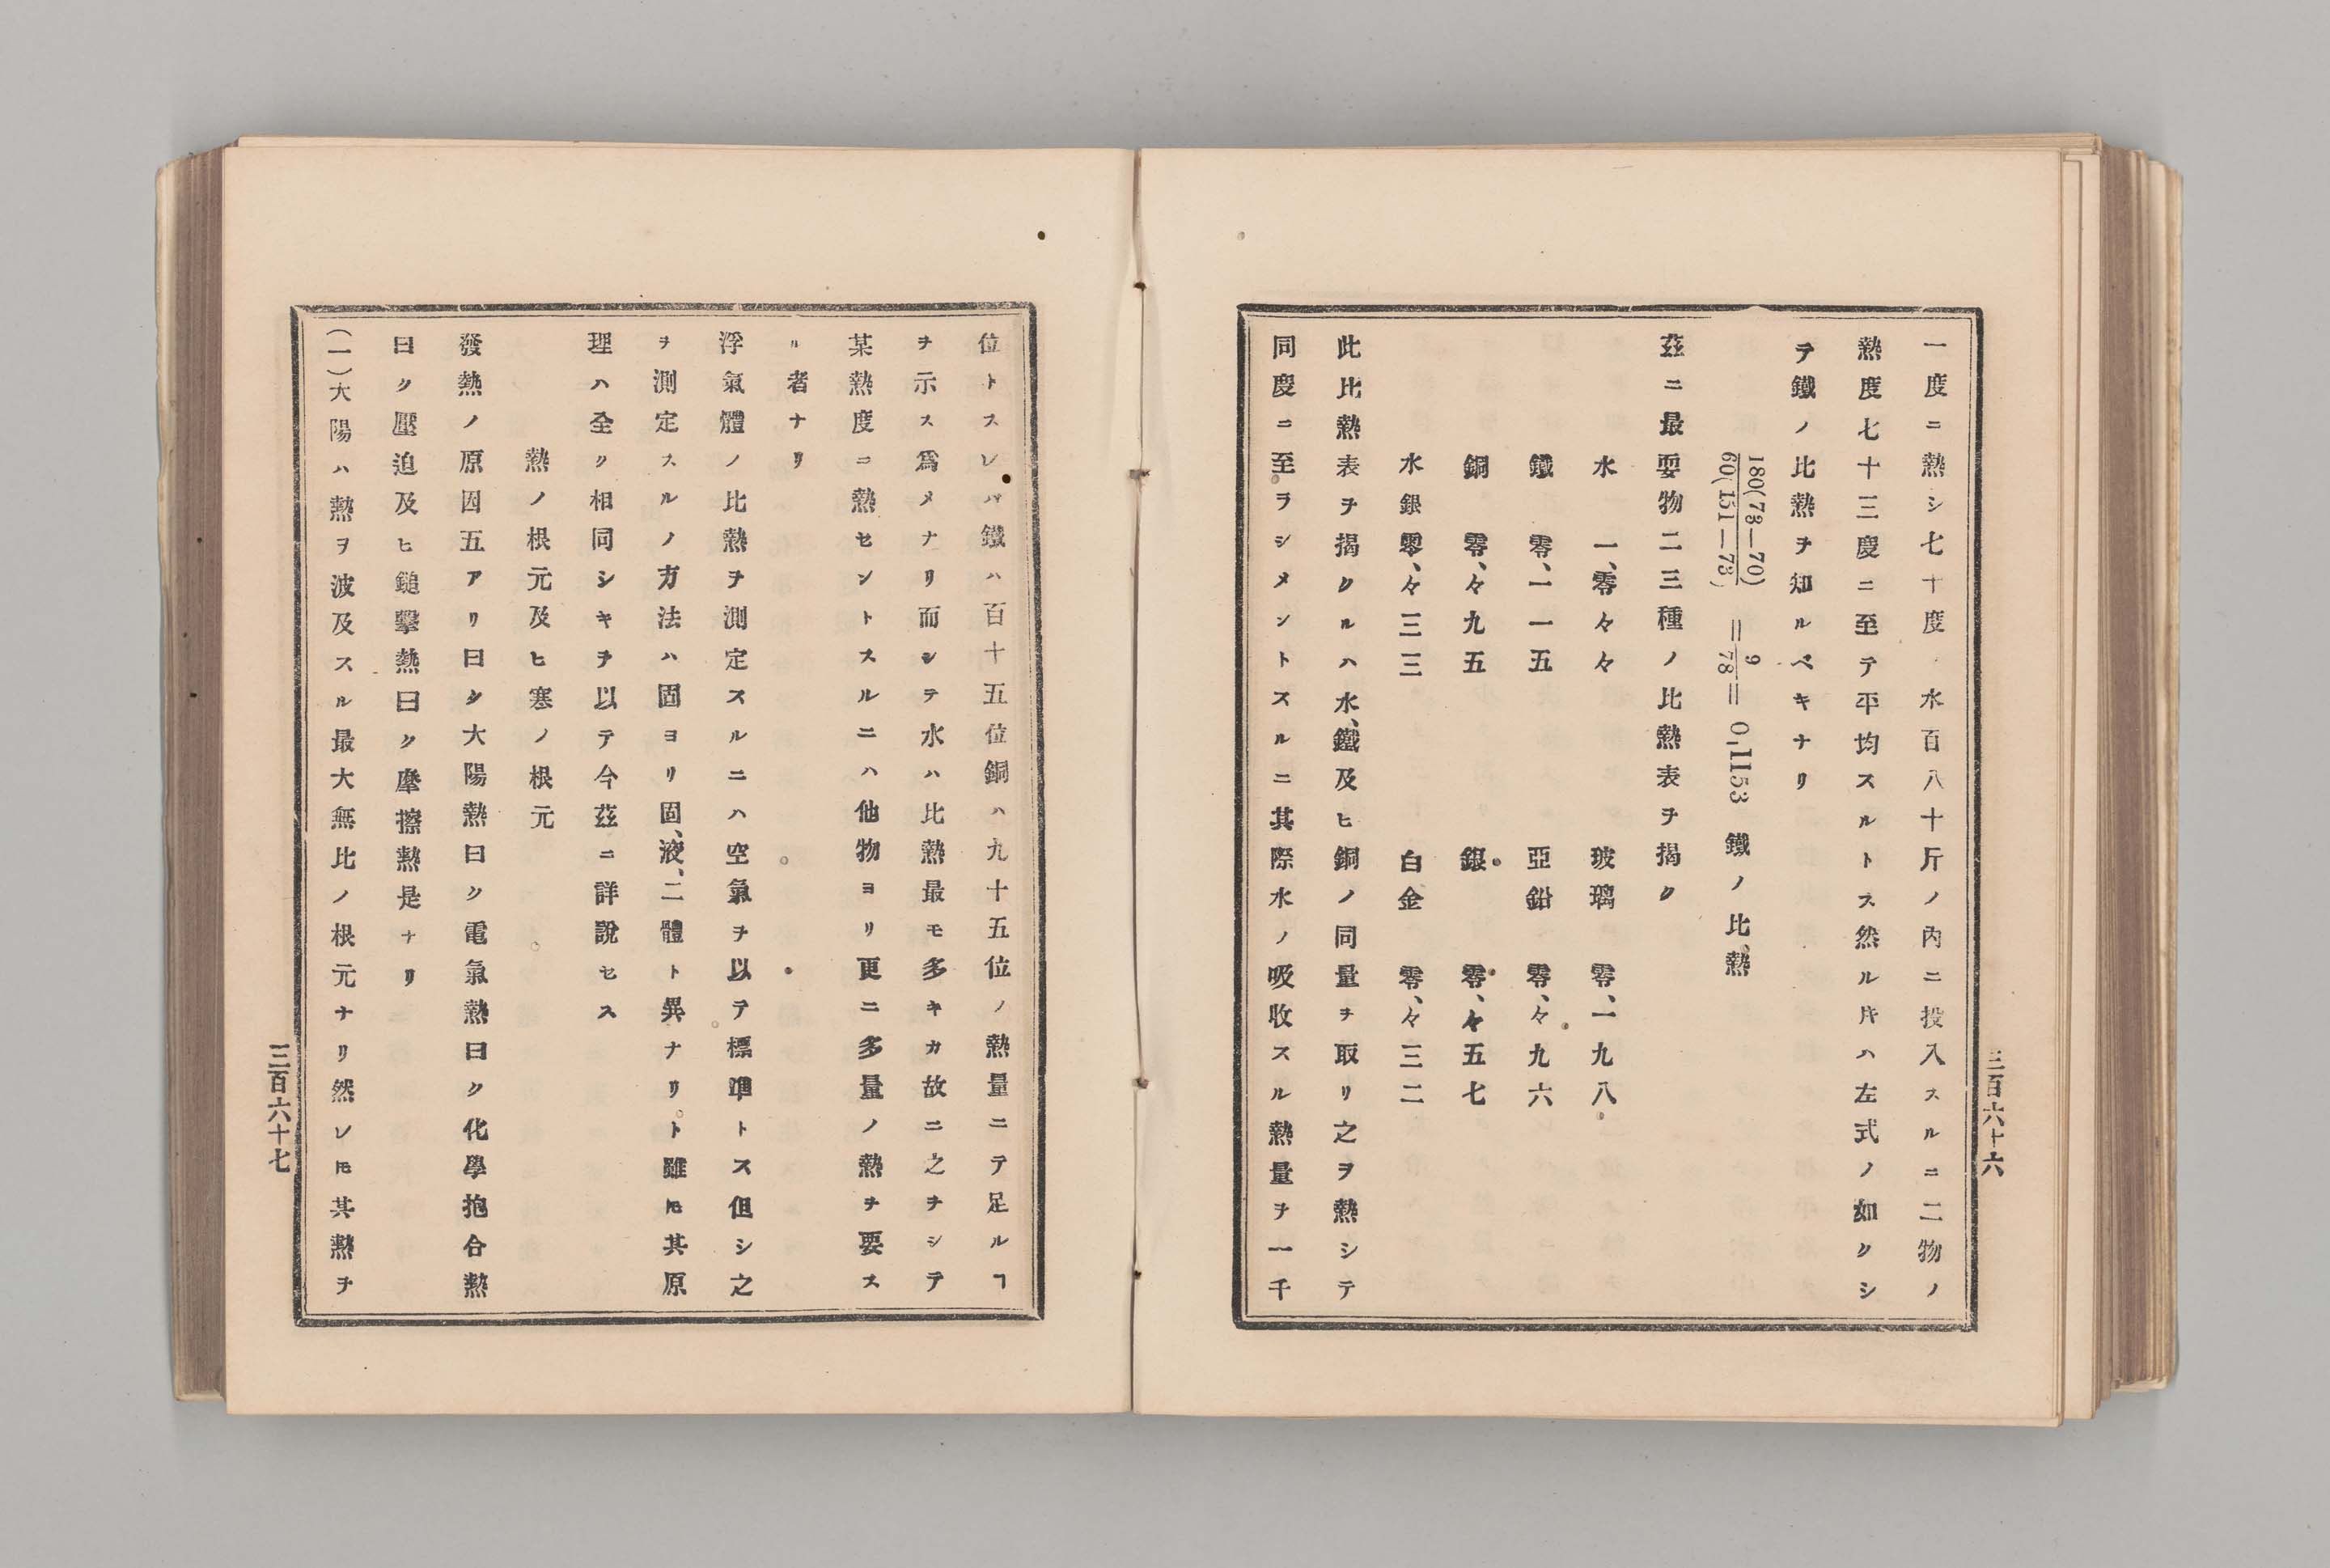 一度ニ熱シ七十度ノ水百八十斤ノ內ニ投入スルニ二物ノ
熱度七十三度ニ至テ平均スルトス然ル片ハ左式ノ如クシ
テ鐵ノ比熱ヲ知ルベキナリ
180(73—70)/60(151—73) = 9/78 = 0,1153 鐵ノ比熱
茲ニ最要物二三種ノ比熱表ヲ揭ク
水 一、零々々 玻璃 零、一九八
鐵 零、一一五 亞鉛 零、々九六
銅 零、々九五 銀 零、々五七
水銀 零、々三三 白金 零、々三二
此比熱表ヲ揭クルハ水、鐵及ヒ銅ノ同量ヲ取リ之ヲ熱シテ
同度ニ至ラシメントスルニ其際水ノ吸收スル熱量ヲ一千
三百六十六
位トスレバ鐵ハ百十五位銅ハ九十五位ノ熱量ニテ足ルヿ
ヲ示ス爲メナリ而シテ水ハ比熱最モ多キカ故ニ之ヲシテ
某熱度ニ熱セントスルニハ他物ヨリ更ニ多量ノ熱ヲ要ス
ル者ナリ
浮氣體ノ比熱ヲ測定スルニハ空氣ヲ以テ標準トス但シ之
ヲ測定スルノ方法ハ固ヨリ固、液、二體ト異ナリト雖𪜈其原
理ハ全ク相同シキヲ以テ今茲ニ詳說セス
熱ノ根元及ヒ寒ノ根元
發熱ノ原因五アリ曰ク大陽熱曰ク電氣熱曰ク化學抱合熱
曰ク壓迫及ヒ鎚擊熱曰ク摩擦熱是ナリ
(一)大陽ハ熱ヲ波及スル最大無比ノ根元ナリ然レ𪜈其熱ヲ
三百六十七